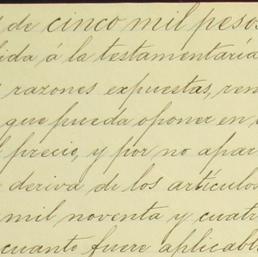 de cinco mil pesos
ida á la testamentaría
razones expuestas, ren
que pueda oponer en
precio, y por no apar
deriva de los artículos
mil noventa y cuatr
cuanto fuere aplicabl